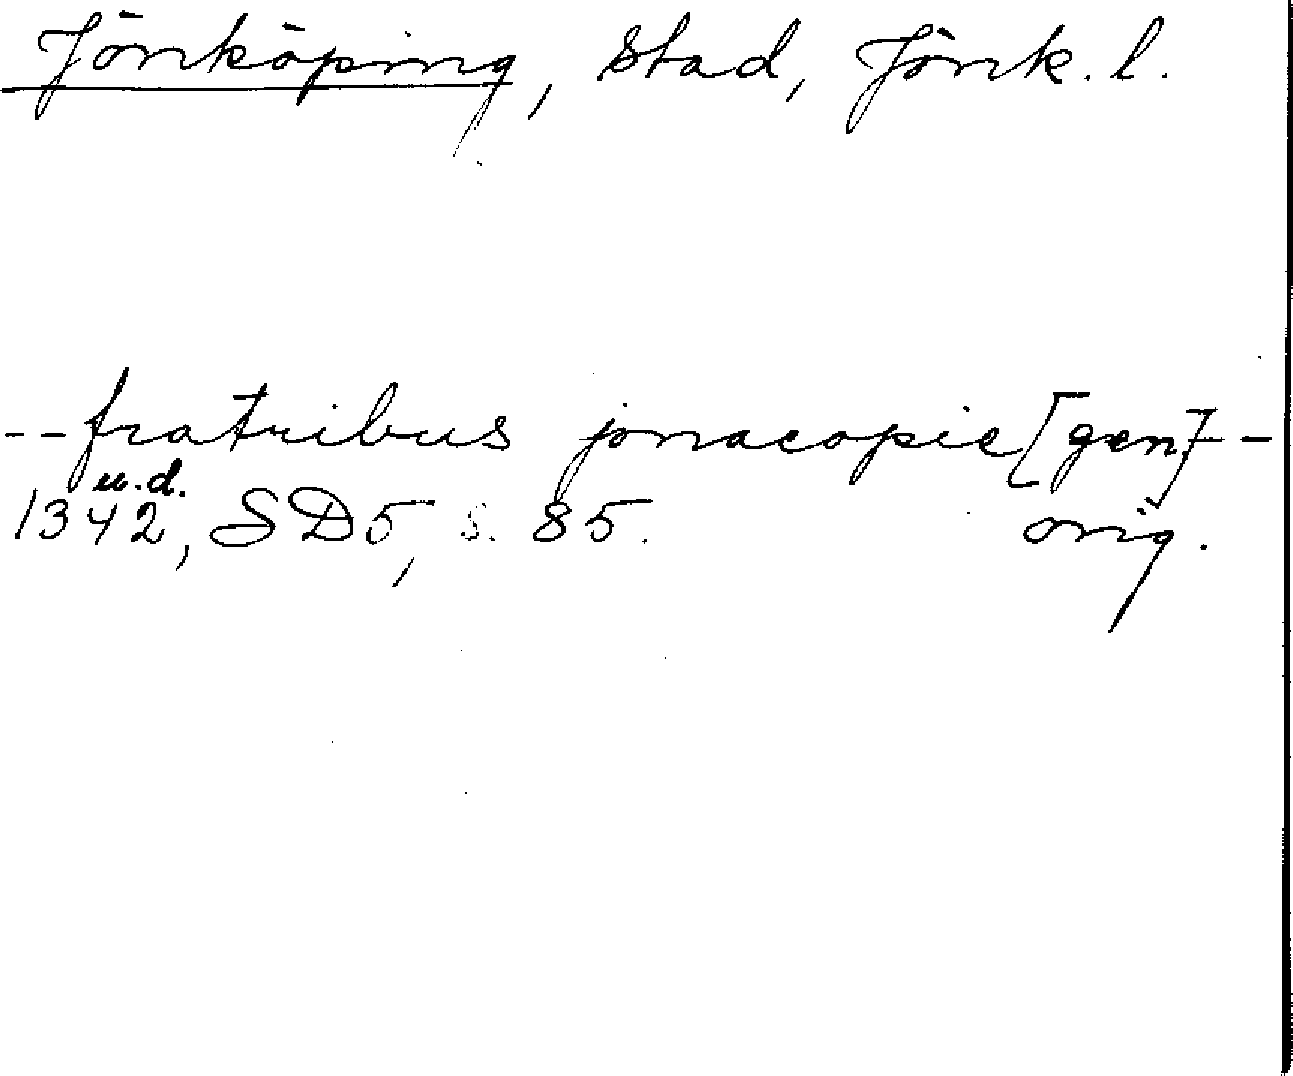 Jönköping, stad, Jönk. l.
--fratribus jonacopie [gen.]--
u.d.
1342, SD5, s. 85. orig.